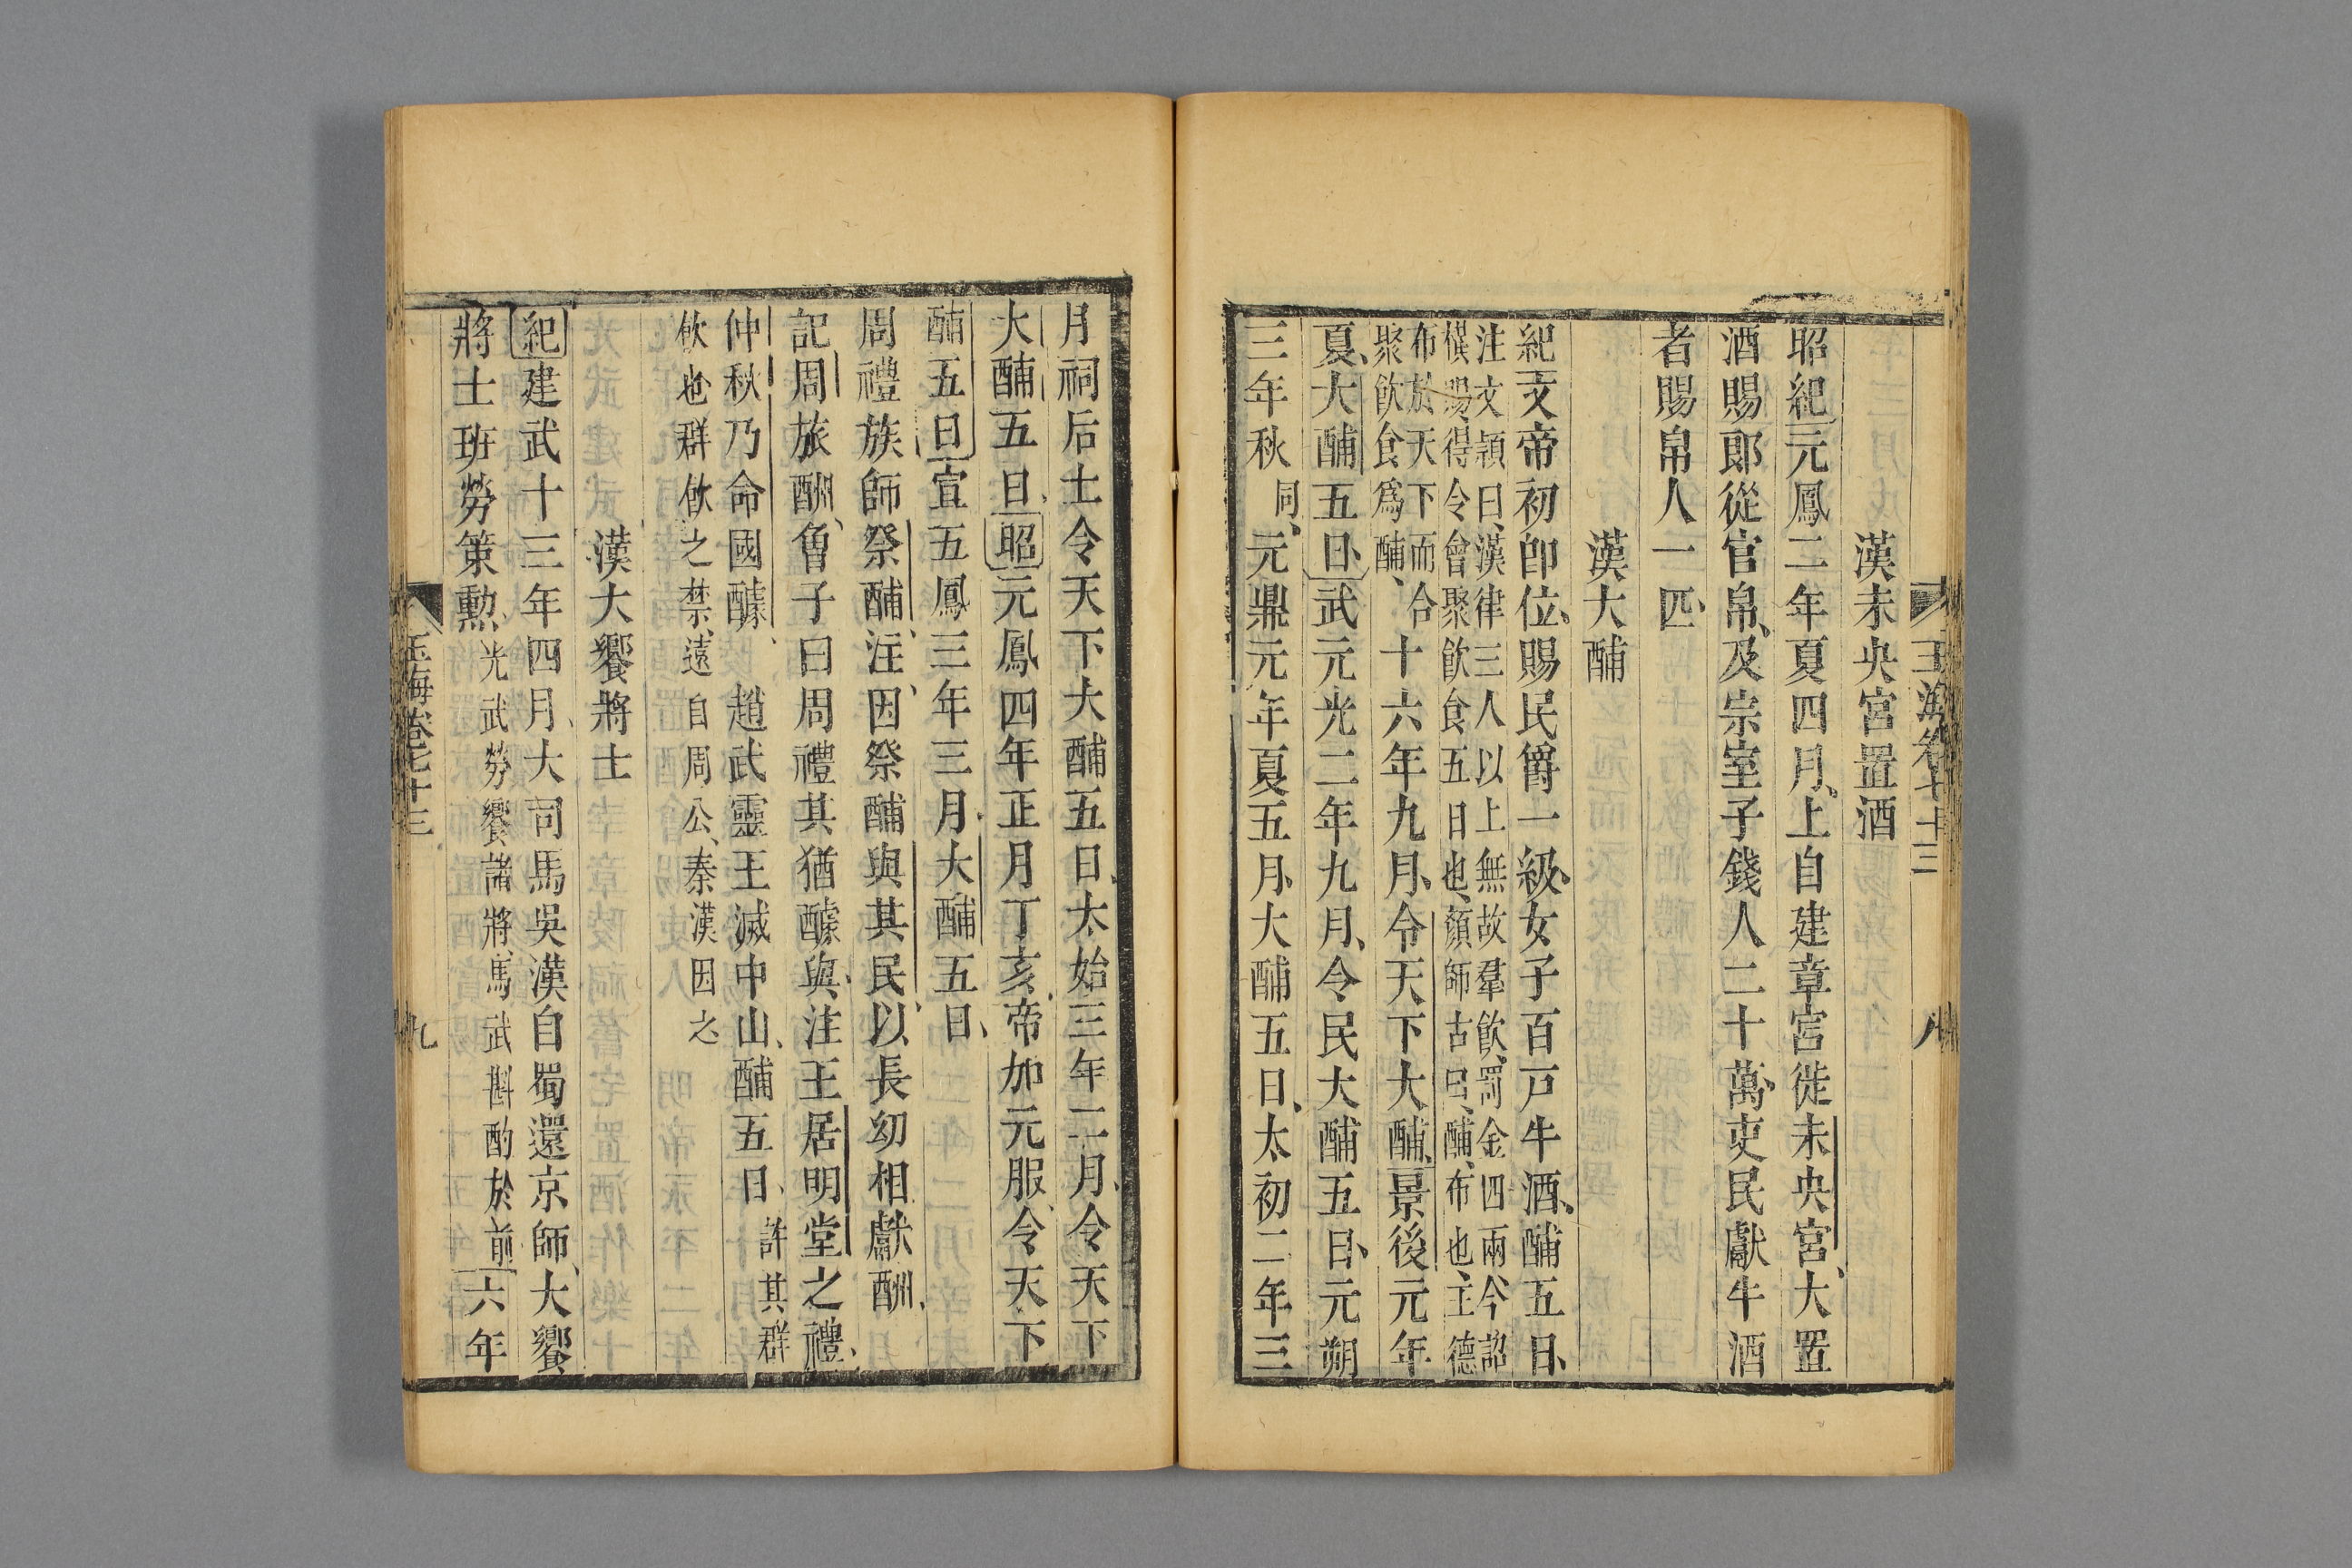 玉海卷七十三　八
漢未央宮置酒
昭紀元鳳二年夏四月上自建章宮徙未央宮大置
酒賜郎從官帛及宗室子錢人二十萬吏民獻牛酒
者賜帛人一匹
漢大酺
紀文帝初卽位賜民爵一級女子百戸牛酒酺五日
注文穎曰漢律三人以上無故羣飮罰金四兩今詔
橫賜得令會聚飮食五日也顏師古曰酺布也主德
布於天下而合
聚飮食爲酺
十六年九月令天下大酺景後元年
夏大酺五日武元光二年九月令民大酺五日元朔
三年秋同元鼎元年夏五月大酺五日太初二年三
月祠后土令天下大酺五日太始三年二月令天下
大酺五日昭元鳳四年正月丁亥帝加元服令天下
酺五日宣五鳳三年三月大酺五日
周禮族師祭酺注因祭酺與其民以長幼相獻酬
記周旅酬曾子曰周禮其猶醵與注王居明堂之禮
仲秋乃命國醵　趙武靈王滅中山酺五日許其群
飮也群飮之禁遠自周公秦漢因之
漢大饗將士
紀建武十三年四月大司馬吳漢自蜀還京師大饗
將士班勞策勲光武勞饗諸將馬武斟酌於前六年
玉海卷七十三　九